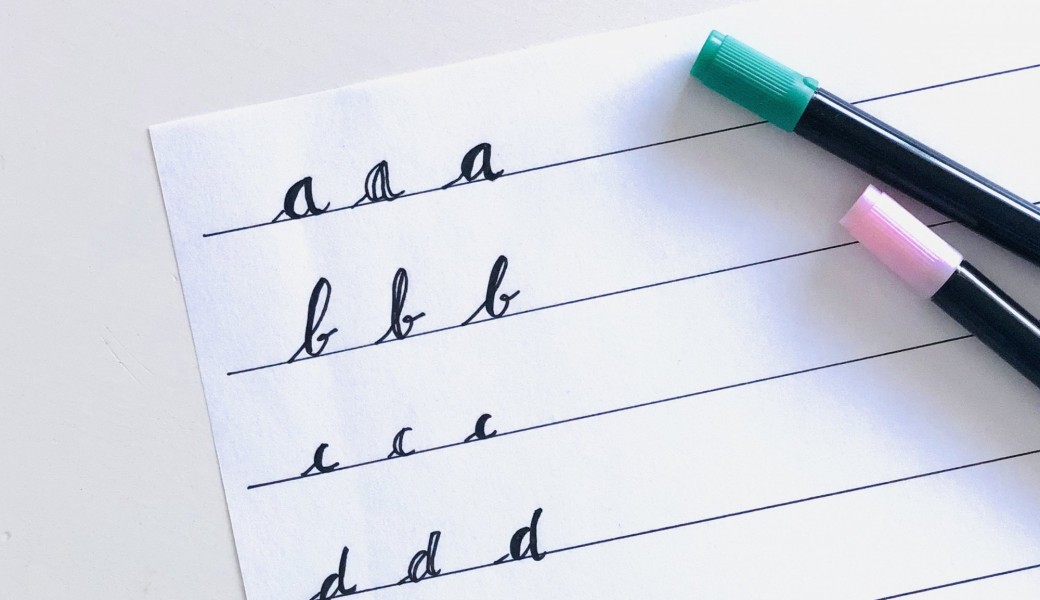 a a a
b b b
c c c
d d d